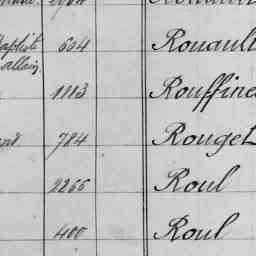 Baptiste 604 Rouault
allain
1113 Rouffine
784 Rouget
2266 Roul
400 Roul